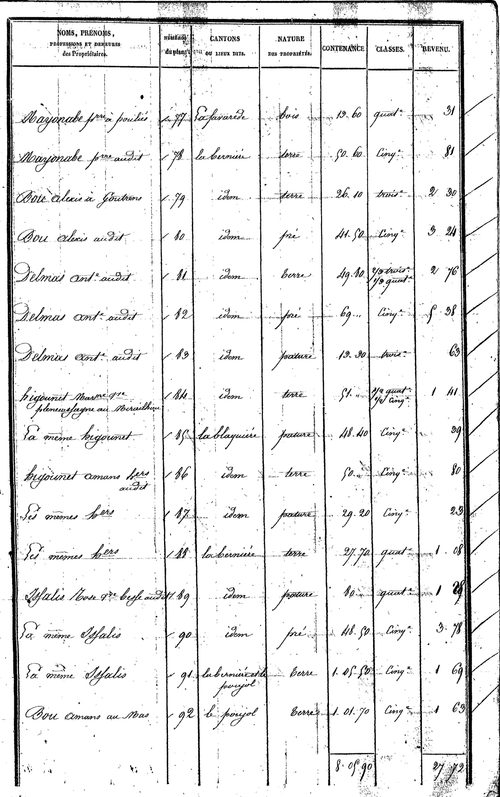 NOMS, PRÉNOMS, PROFESSIONS ET DEMEURES des Propriétaires. NUMÉROS du plan. CANTONS OU LIEUX DITS. NATURE DES PROPRIÉTÉS. CONTENANCE. CLASSES. REVENU.
Mayonabe pre à 77 La favarede bois 19.60 quat.e 31
Mayonabe pre audit 78 la berniée terre 50.60 Cinq.e 81
Bou alexis à Goutrens 79 idem terre 26.10 trois.e 2 30
Bou alexis audit 80 idem pré 41.50 Cinq.e 3 24
Delmas ant.e audit 81 idem terre 49.80 1/2 trois.e 1/2 quat.e 2 76
Delmas ant.e audit 82 idem pré 69 Cinq.e 5 38
Delmas ant.e audit 83 idem pature 19.30 trois.e 63
higounet 84 idem terre 51. 1/2 quat.e 1/2 Cinq.e 1 41
La même higounet 85 la blaquiére pature 48.40 Cinq.e 39
higounet amans hers audit 86 idem terre 50. Cinq.e 80
Les mêmes hers 87 idem pature 29.20 Cinq.e 23
Les mêmes hers 88 la berniée terre 27.70 quat.e 1 08
Issalis Rose audit 89 idem pature 80 quat.e 1 28
La même Issalis 90 idem pré 48.50 Cinq.e 3 78
La même Issalis 91 la berniée et le poujol terre 1.05.50 Cinq.e 1 69
Bou amans au Mas 92 le poujol terre 1.01.70 Cinq.e 1 63
8.05.90 27 72